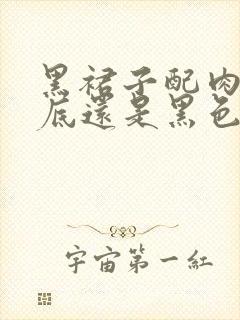 黑裙子配肉
底還是黑色
宇宙第一紅